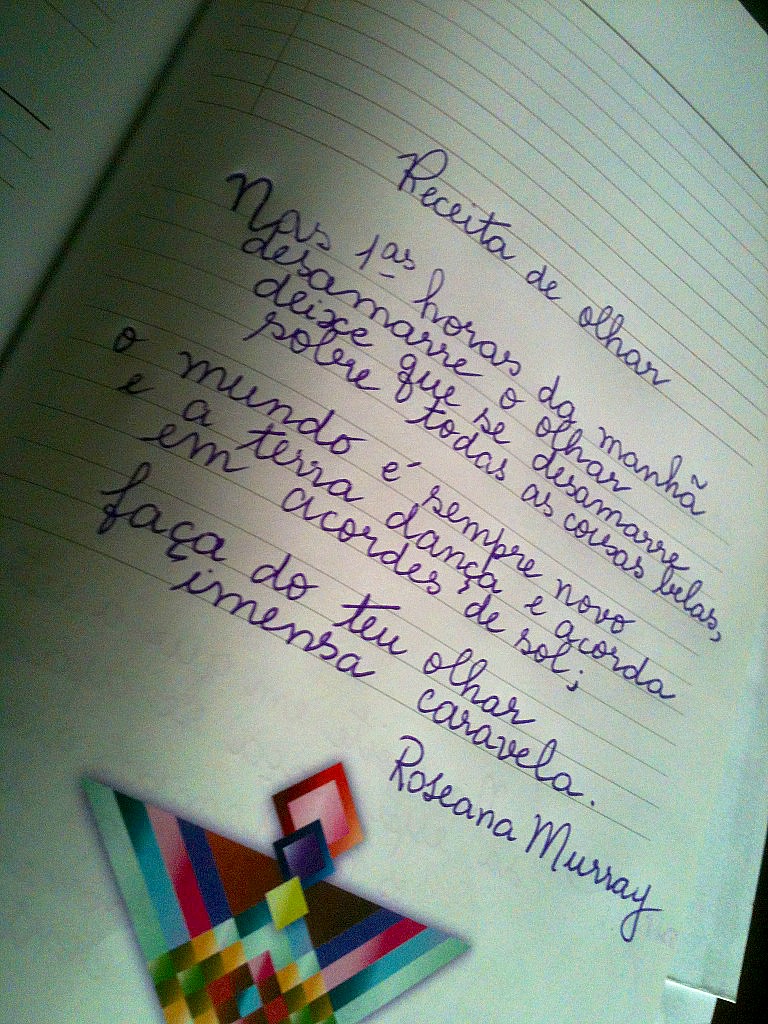 Receita de olhar
Nas 1ªs horas da manhã
desamarre o olhar
deixe que se desamarre
sobre todas as coisas belas,
o mundo é sempre novo
e a terra dança e acorda
em acordes de sol;
faça do teu olhar
imensa caravela.
Roseana Murray